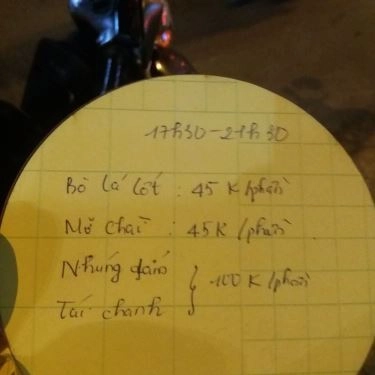 17h30-21h30
Bò lá lốt : 45 K/phần
Mỡ chài : 45K/phần
Nhúng dấm } 100 K/phần
Tái chanh